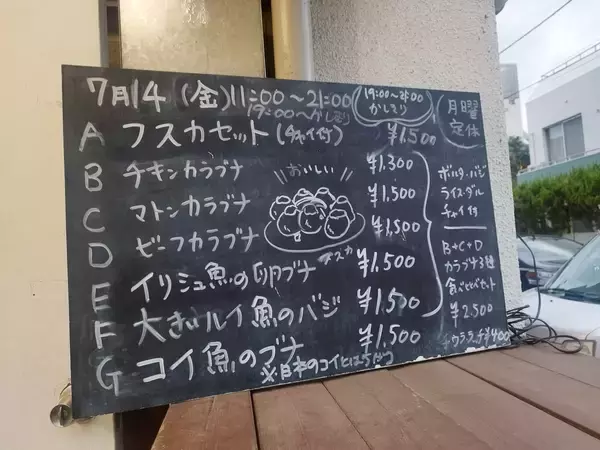 7月14 (金) 11:00～21:00
19:00～かしきり
19:00～21:00
かしきり
月曜
定休
A フスカセット(チャイ付) ¥1,500
B チキンカラブナ ¥1,300
C マトンカラブナ ¥1,500
D ビーフカラブナ ¥1,500
E イリシュ魚の卵ブナ ¥1,500
F 大きいルイ魚のバジ ¥1,500
G コイ魚のブナ ¥1,500
※日本のコイとはちがう
\\おいしい//
フスカ
ボルタ・バジ
ライス・ダル
チャイ付
B+C+D
カラブナ3種
食べ比べセット
¥2,500
¥400